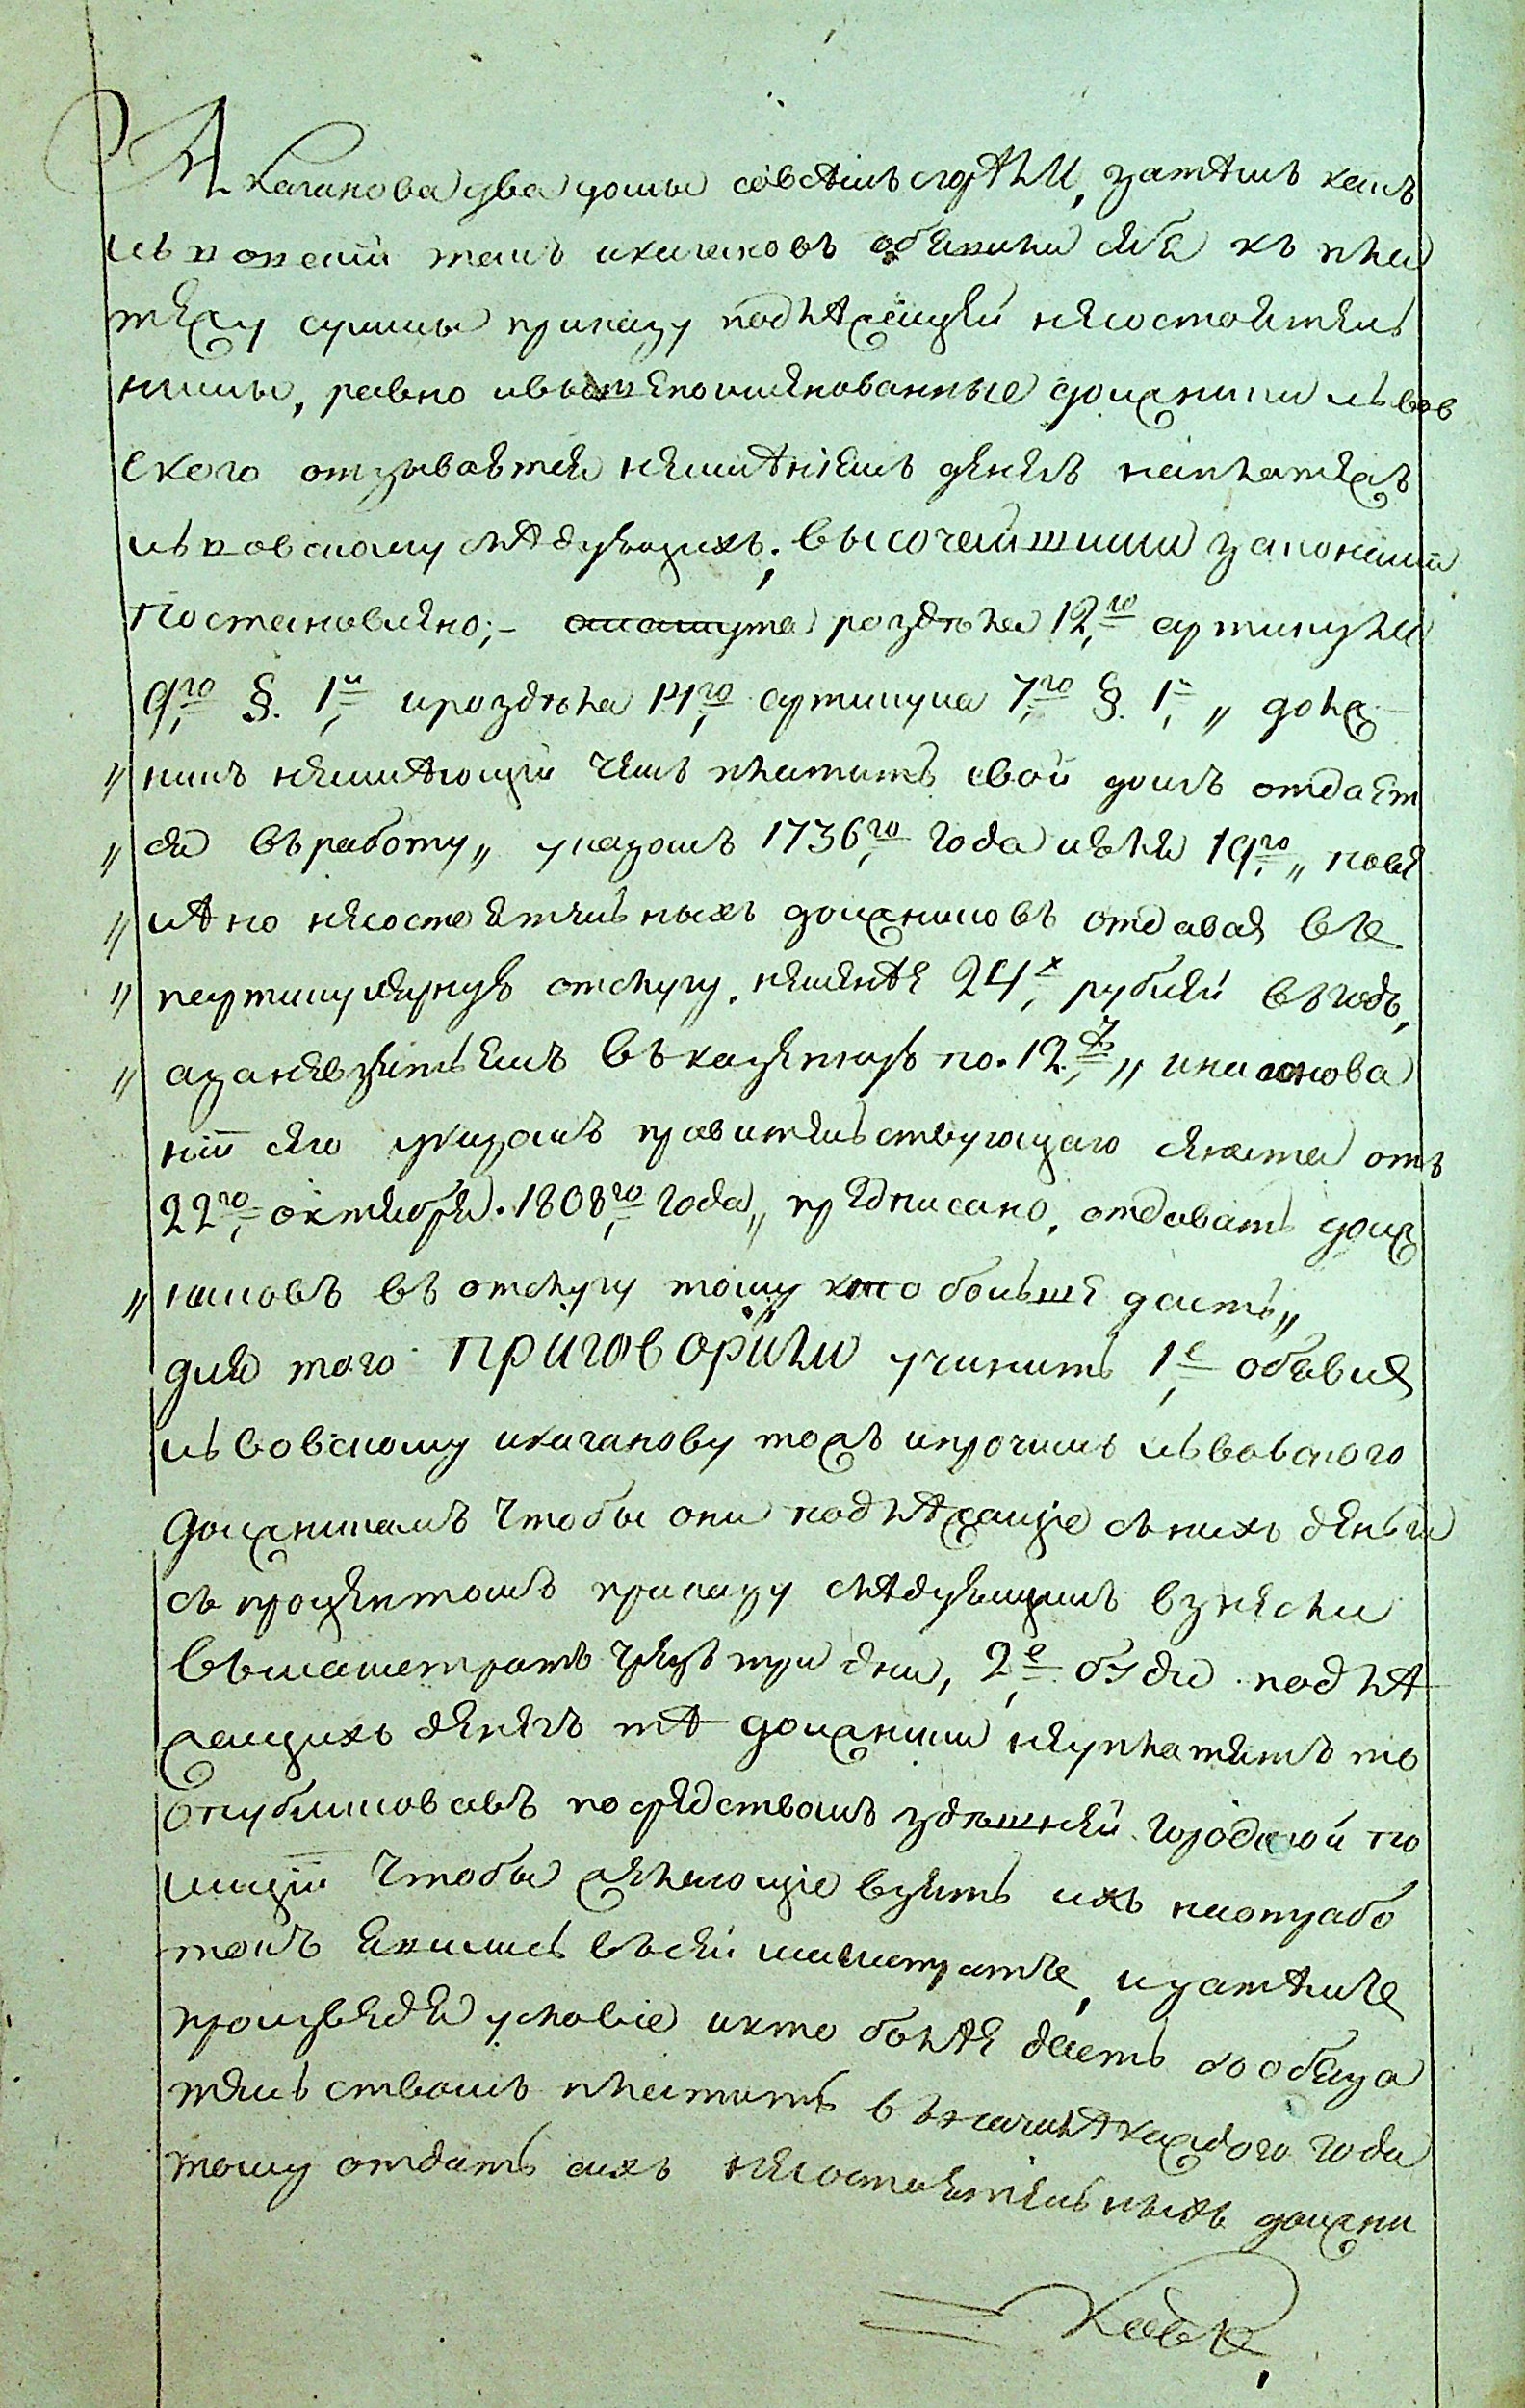 А Каганова два домы совсѣмъ сгорѣли, затѣмъ какъ
Львовскій такъ и Кагановъ объявили себя къ пла
тежу суммы приказу подлѣжащей несостоятель
ными, равно и вышепоименованные должники Львов
скаго отзываются неимѣнiемъ денегъ на платежъ
Львовскому слѣдующихъ; высочайшими законами
постановлено;- раздѣла 12,го артикула
9,го §. 1,й и роздѣла 14,го артикула 7,го §. 1,й „ долж
„ никъ неимѣющiй чемъ платить свой долгъ отдает
„ ся въ работу„ указомъ 1736,го года июля 19,го „ пове
„ лѣно несостоятельныхъ должниковъ отдавая въ
„ партикулярную отслугу, неменѣе 24,х рублей въ годъ,
„ а за невзятьемъ въ казенную по 12,ть „ и на основа
нiи сего указомъ правительствующаго сената отъ
22,го октября 1808,го года„ предписано, отдавать долж
„ никовъ въ отслугу тому кто больше дастъ„
для того приговорили учинить 1,е объявля
Львовскому и Каганову тожъ и прочимъ Львовскаго
должникамъ чтобы они подлѣжащiе съ нихъ деньги
съ процентомъ приказу слѣдующимъ взнесли
въ магистратъ чрезъ три дни, 2,е буди подлѣ
жащихъ денегъ тѣ должники неуплатятъ то
опубликовавъ посредствомъ здѣшней городской по
лицiи чтобы желающiе взять ихъ на отрабо
токъ явились въ сей магистратъ, и затѣмъ
произведя условiе и кто болѣе дастъ со обяза
тельствомъ платить въ началѣ каждого года
тому отдать сихъ несостоятельныхъ должни